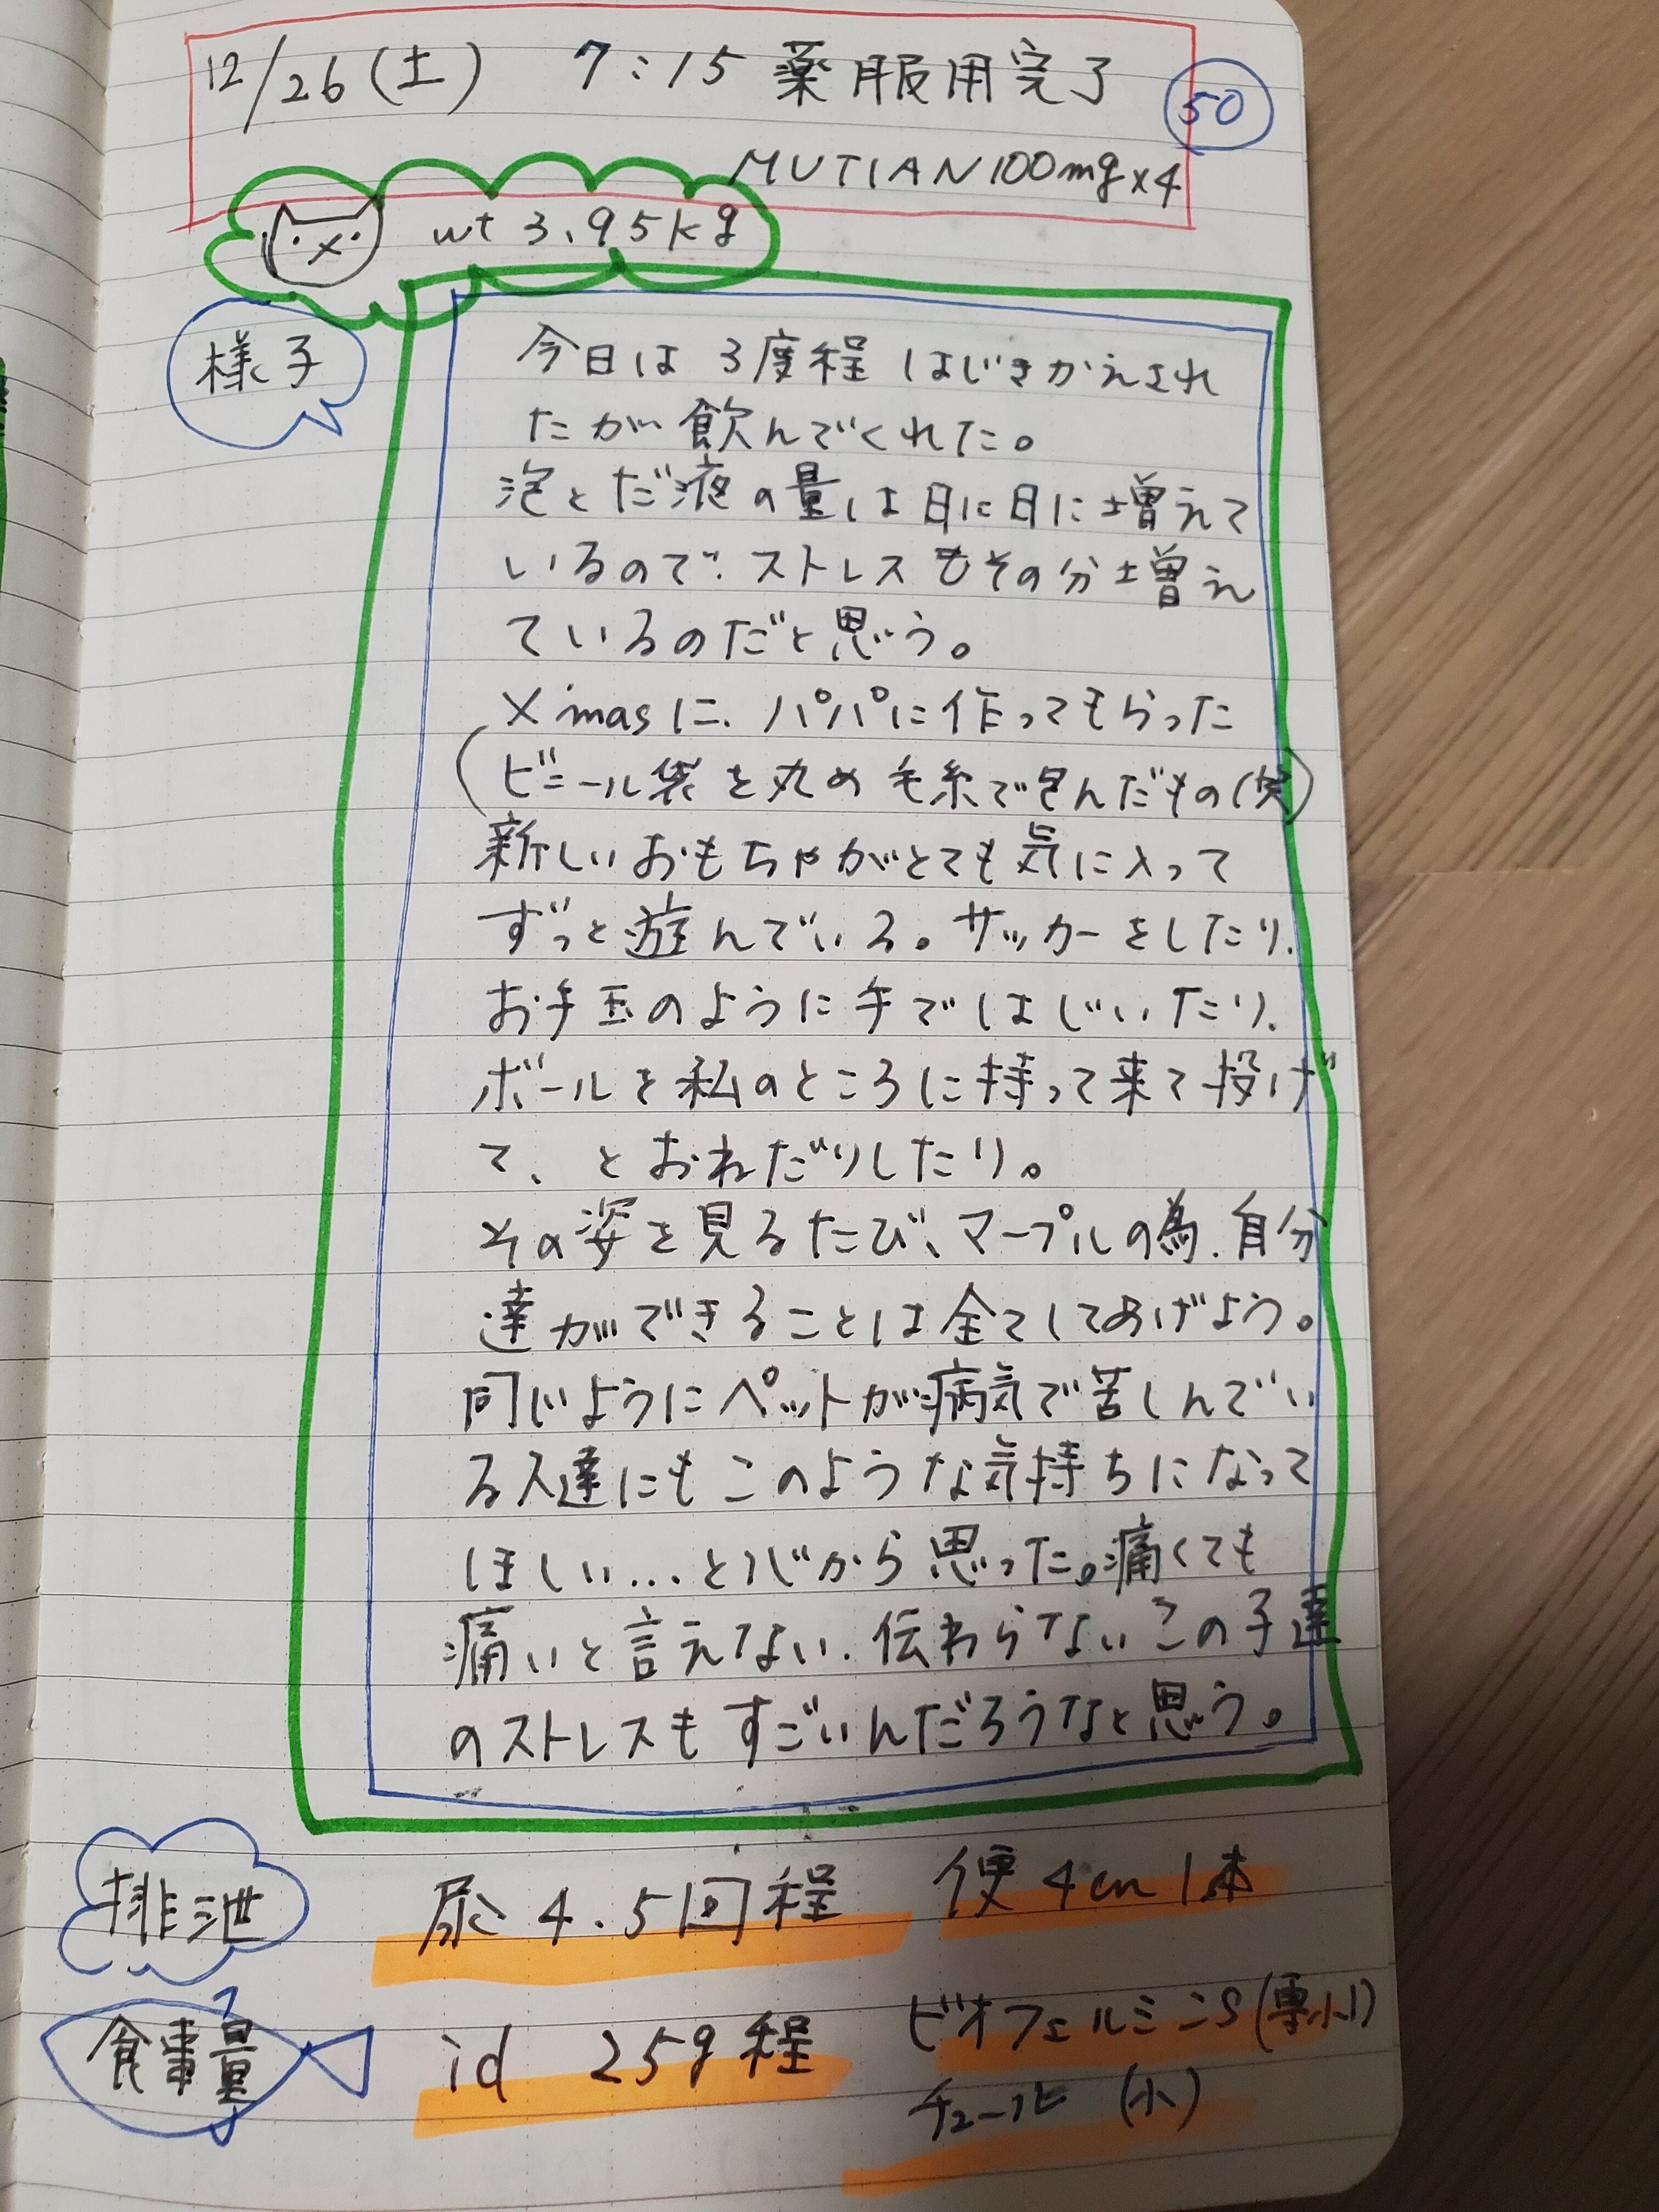 12/26(土) 7:15 薬服用完了
50
MUTIAN100mg×4
wt 3.95kg
様子
今日は3度程はじきかえされ
たが飲んでくれた。
泡とだ液の量は日に日に増えて
いるので、ストレスもその分増え
ているのだと思う。
X'masに、パパに作ってもらった
(ビニール袋を丸め毛糸で包んだもの(笑)
新しいおもちゃがとても気に入って
ずっと遊んでいる。サッカーをしたり、
お手玉のように手ではじいたり、
ボールを私のところに持って来て投げ
て、とおねだりしたり。
その姿を見るたび、マープルの為、自分
達ができることは全てしてあげよう。
同じようにペットが病気で苦しんでい
る人達にもこのような気持ちになって
ほしい…と心から思った。痛くても
痛いと言えない、伝わらないこの子達
のストレスもすごいんだろうなと思う。
排泄
尿 4.5回程 便 4cm 1本
食事量
id 25g程 ビオフェルミンS
(小)